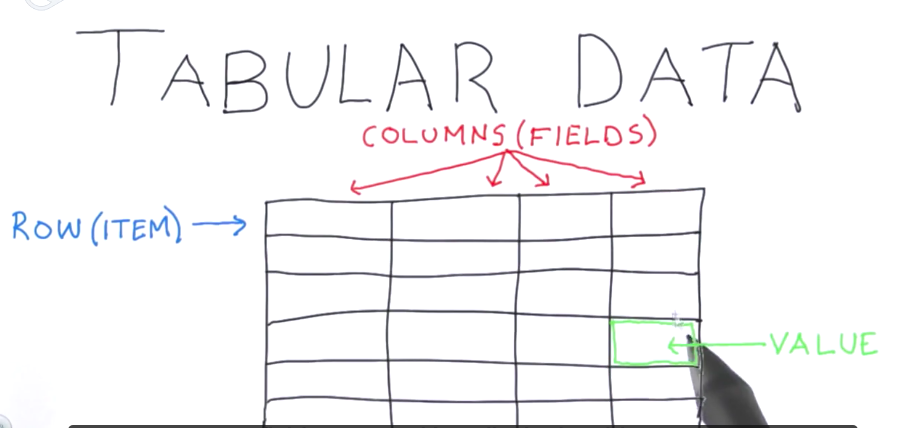 TABULAR DATA
COLUMNS (FIELDS)
ROW (ITEM)
VALUE